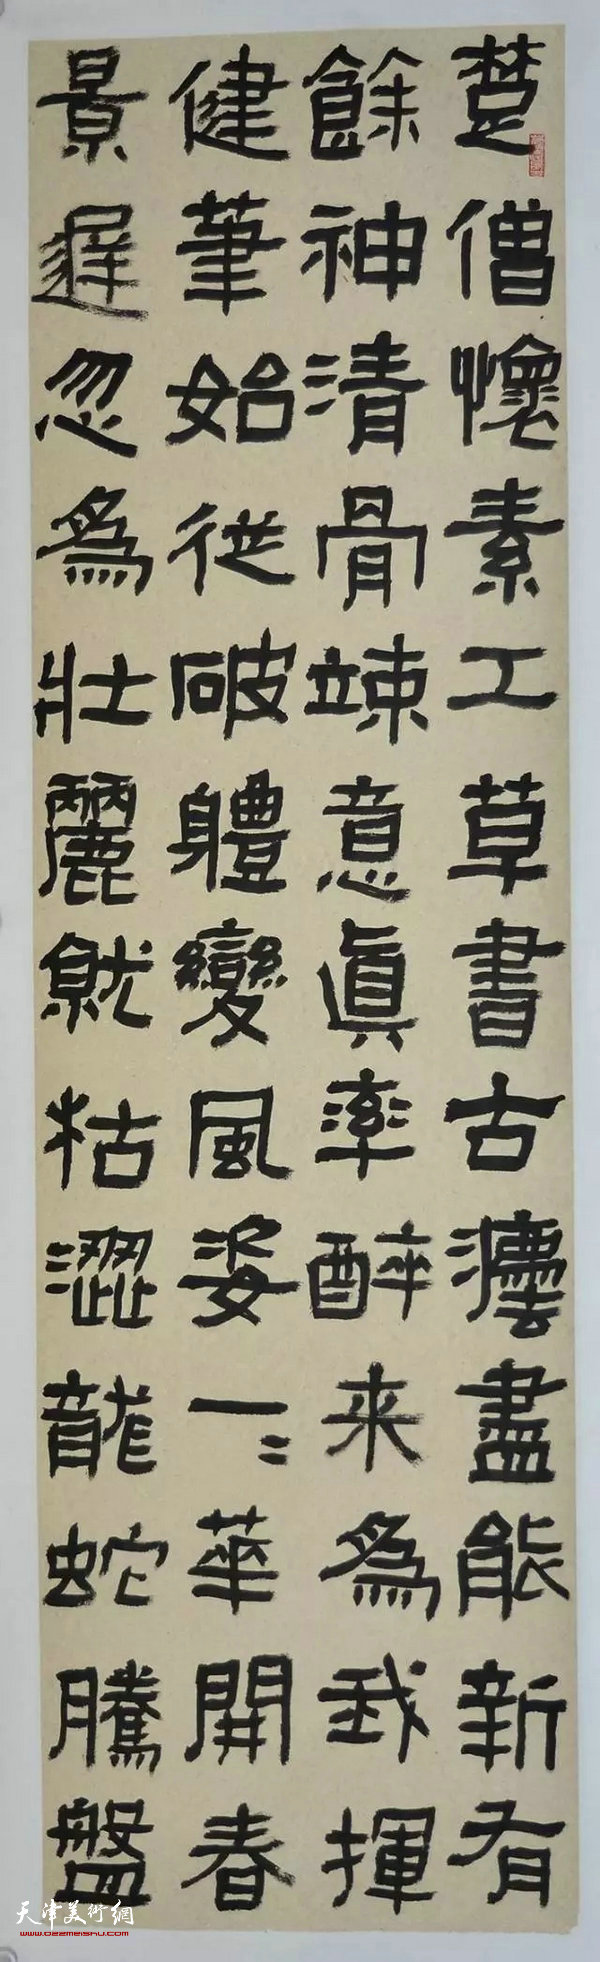 楚僧懷素工草書古灋盡能新有
餘神清骨竦意真率醉来為我揮
健筆始從破體變風姿一〻華開春
景遲忽為壯麗就枯澀龍蛇騰盤
天津美術網
www.022meishu.com